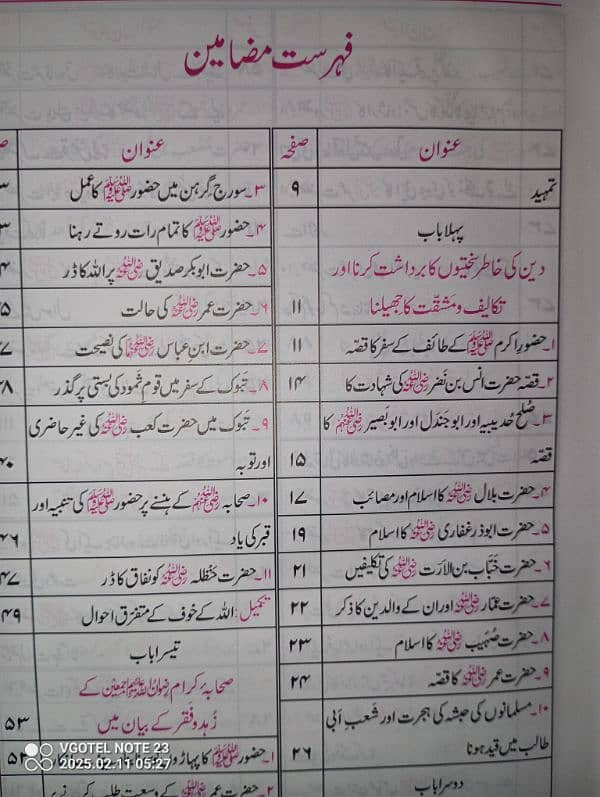 فہرست مضامین
عنوان صفحہ
تمہید ۹
پہلا باب
دین کی خاطر سختیوں کا برداشت کرنا اور
تکالیف و مشقت کا جھیلنا ۱۱
۱۔ حضور اکرم ﷺ کے طائف کے سفر کا قصہ ۱۱
۲۔ قصہ حضرت انس بن نضر رضی اللہ عنہ کی شہادت کا ۱۴
۳۔ صلح حدیبیہ اور ابو جندل اور ابو بصیر رضی اللہ عنہم کا
قصہ ۱۵
۴۔ حضرت بلال رضی اللہ عنہ کا اسلام اور مصائب ۱۷
۵۔ حضرت ابوذر غفاری رضی اللہ عنہ کا اسلام ۱۹
۶۔ حضرت خباب بن الارت رضی اللہ عنہ کی تکلیفیں ۲۱
۷۔ حضرت عمار رضی اللہ عنہ اور ان کے والدین کا ذکر ۲۲
۸۔ حضرت صہیب رضی اللہ عنہ کا اسلام ۲۳
۹۔ حضرت عمر رضی اللہ عنہ کا قصہ ۲۴
۱۰۔ مسلمانوں کی حبشہ کی ہجرت اور شعب ابی
طالب میں قید ہونا ۲۶
دوسرا باب
عنوان
۳۔ سورج گرہن میں حضور ﷺ کا عمل
۴۔ حضور ﷺ کا تمام رات روتے رہنا
۵۔ حضرت ابوبکر صدیق رضی اللہ عنہ پر اللہ کا ڈر
۶۔ حضرت عمر رضی اللہ عنہ کی حالت
۷۔ حضرت ابن عباس رضی اللہ عنہما کی نصیحت
۸۔ تبوک کے سفر میں قوم ثمود کی بستی پر گذر
۹۔ تبوک میں حضرت کعب رضی اللہ عنہ کی غیر حاضری
اور توبہ ۴۰
۱۰۔ صحابہ رضی اللہ عنہم کے ہنسنے پر حضور ﷺ کی تنبیہ اور
قبر کی یاد ۴۶
۱۱۔ حضرت حنظلہ رضی اللہ عنہ کو نفاق کا ڈر ۴۷
تکمیل: اللہ کے خوف کے متفرق احوال ۴۹
تیسرا باب
صحابہ کرام رضوان اللہ علیہم اجمعین کے
زہد و فقر کے بیان میں ۵۳
۱۔ حضور ﷺ کا پہاڑوں
۲۔ حضرت عمر رضی اللہ عنہ کے وسعت طلب کرنے پر
VGOTEL NOTE 23
2025.02.11 05:27